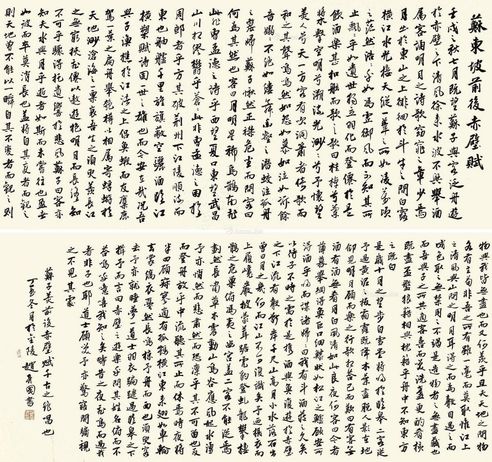 蘇東坡前後赤壁賦
壬戌之秋七月既望蘇子與客泛舟遊
於赤壁之下清風徐來水波不興舉酒
屬客誦明月之詩歌窈窕之章少焉
月出於東山之上徘徊於斗牛之間白露
橫江水光接天縱一葦之所如凌萬頃
之茫然浩浩乎如馮虛御風而不知其所
止飄飄乎如遺世獨立羽化而登僊於是
飲酒樂甚扣舷而歌之歌曰桂棹兮蘭
槳擊空明兮溯流光渺渺兮予懷望
美人兮天一方客有吹洞簫者倚歌而
和之其聲嗚嗚然如怨如慕如泣如訴餘
音嫋嫋不絕如縷舞幽壑之潛蛟泣孤舟
之嫠婦蘇子愀然正襟危坐而問客曰
何為其然也客曰月明星稀烏鵲南飛
此非曹孟德之詩乎西望夏口東望武昌
山川相繆鬱乎蒼蒼此非孟德之困於
周郎者乎方其破荊州下江陵順流而
東也舳艫千里旌旗蔽空釃酒臨江
橫槊賦詩固一世之雄也而今安在哉況吾
與子漁樵於江渚之上侶魚蝦而友麋鹿
駕一葉之扁舟舉匏樽以相屬寄蜉蝣於
天地渺滄海之一粟哀吾生之須臾羨長江
之無窮挾飛僊以遨遊抱明月而長終知
不可乎驟得托遺響於悲風蘇子曰客亦
知夫水與月乎逝者如斯而未嘗往也盈虛
者如彼而卒莫消長也蓋將自其變者而觀之
則天地曾不能以一瞬自其不變者而觀之則
物與我皆無盡也而又何羨乎且夫天地之間物
各有主苟非吾之所有雖一毫而莫取惟江上
之清風與山間之明月耳得之而為聲目遇之而
成色取之無禁用之不竭是造物者之無盡藏也
而吾與子之所共適客喜而笑洗盞更酌肴核
既盡杯盤狼藉相與枕藉乎舟中不知東方
之既白
是歲十月之望步自雪堂將歸於臨皋二客從
予過黃泥之坂霜露既降木葉盡脫人影在地
仰見明月顧而樂之行歌相答已而歎曰有客無
酒有酒無肴月白風清如此良夜何客曰今者
薄暮舉網得魚巨口細鱗狀似松江之鱸顧安所
得酒乎歸而謀諸婦婦曰我有斗酒藏之久矣
以待子不時之需於是攜酒與魚復遊於赤壁
之下江流有聲斷岸千尺山高月小水落石出
曾日月之幾何而江山不可復識矣予乃攝衣而
上履巉巖披蒙茸踞虎豹登虬龍攀棲
鶻之危巢俯馮夷之幽宮蓋二客不能從焉
劃然長嘯草木震動山鳴谷應風起水湧
予亦悄然而悲肅然而恐凜乎其不可留也反
而登舟放乎中流聽其所止而休焉時夜將
半四顧寂寥適有孤鶴橫江東來翅如車輪
玄裳縞衣戛然長鳴掠予舟而西也須臾客
去予亦就睡夢一道士羽衣蹁躚過臨皋之下
揖予而言曰赤壁之遊樂乎問其姓名俛而不
答嗚呼噫嘻我知之矣疇昔之夜飛鳴而過我
者非子也耶道士顧笑予亦驚寤開戶視
之不見其處
蘇子美前後赤壁賦千古之絕唱也
丁亥冬月於金陵 趙 國書